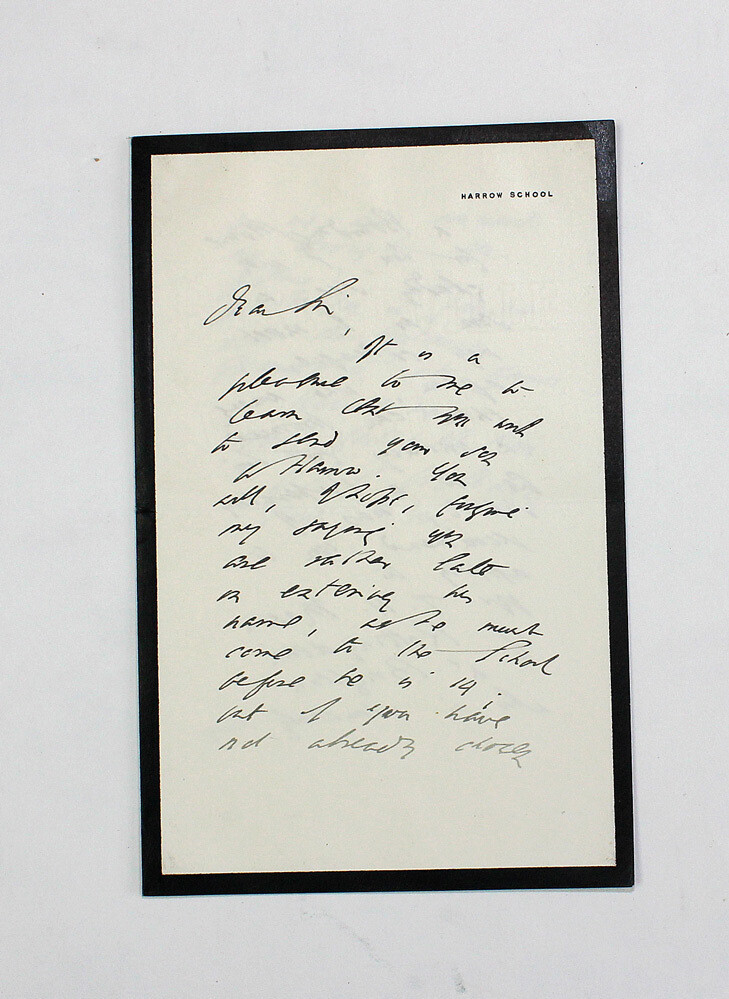 HARROW SCHOOL
Dear Sir,
It is a
pleasure to me to
learn that you wish
to send your son
to Harrow. You
will, I hope, forgive
my saying you
are rather late
in entering his
name, as he must
come to the School
before he is 14.
but if you have
not already chosen